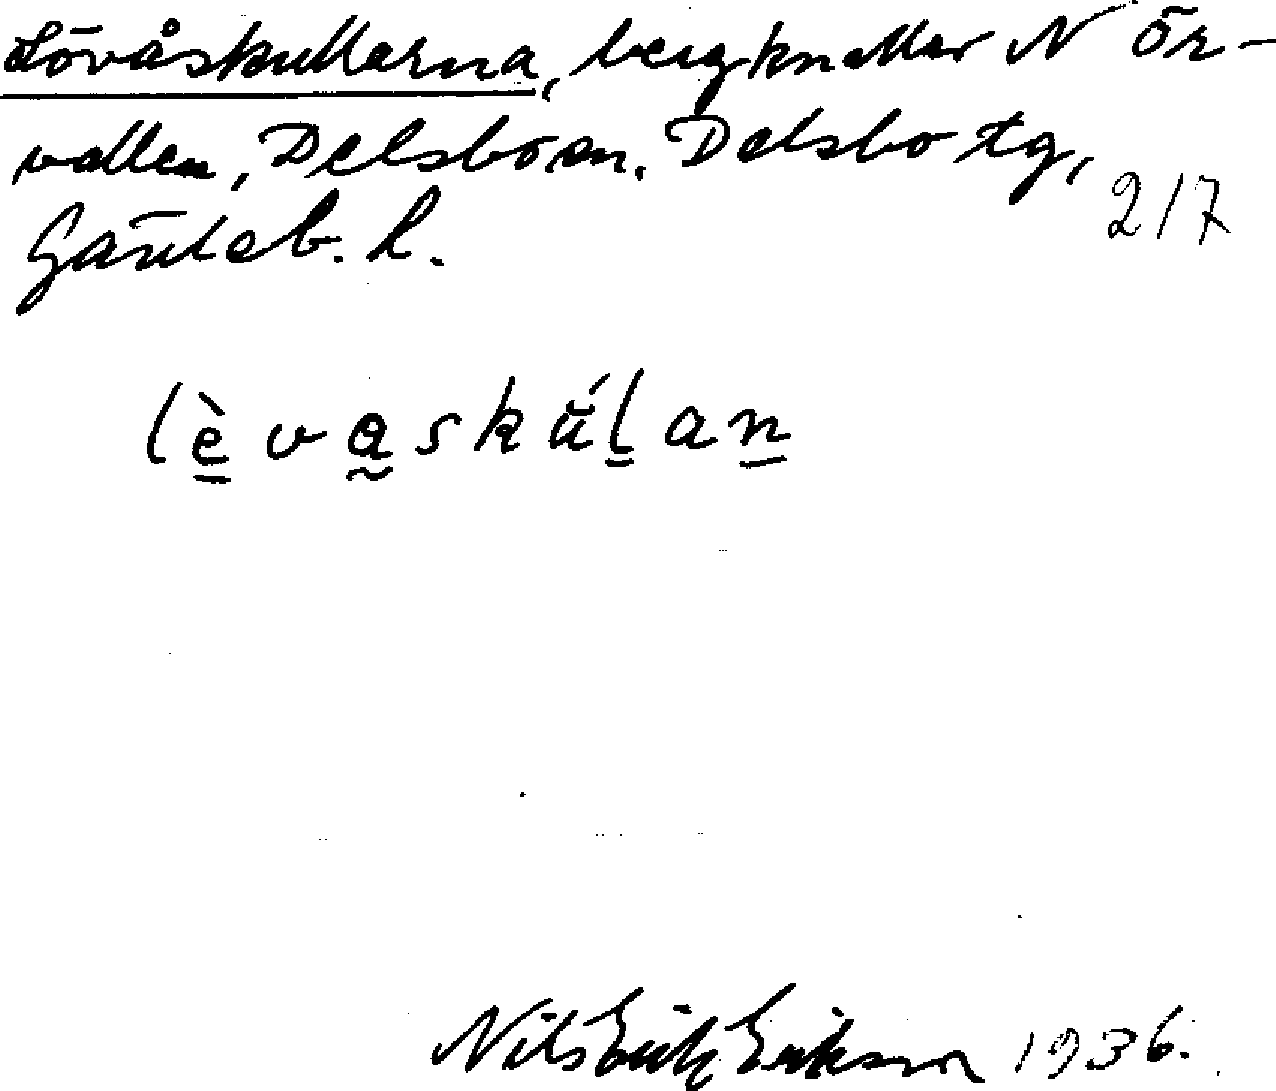 Lövåskullarna, bergknallar N Ör-
vallen, Delsboån. Delsbo tg,
Gävleb. l. 217
lèvaskŭ́lan
Nils Erik Eriksson 1936.